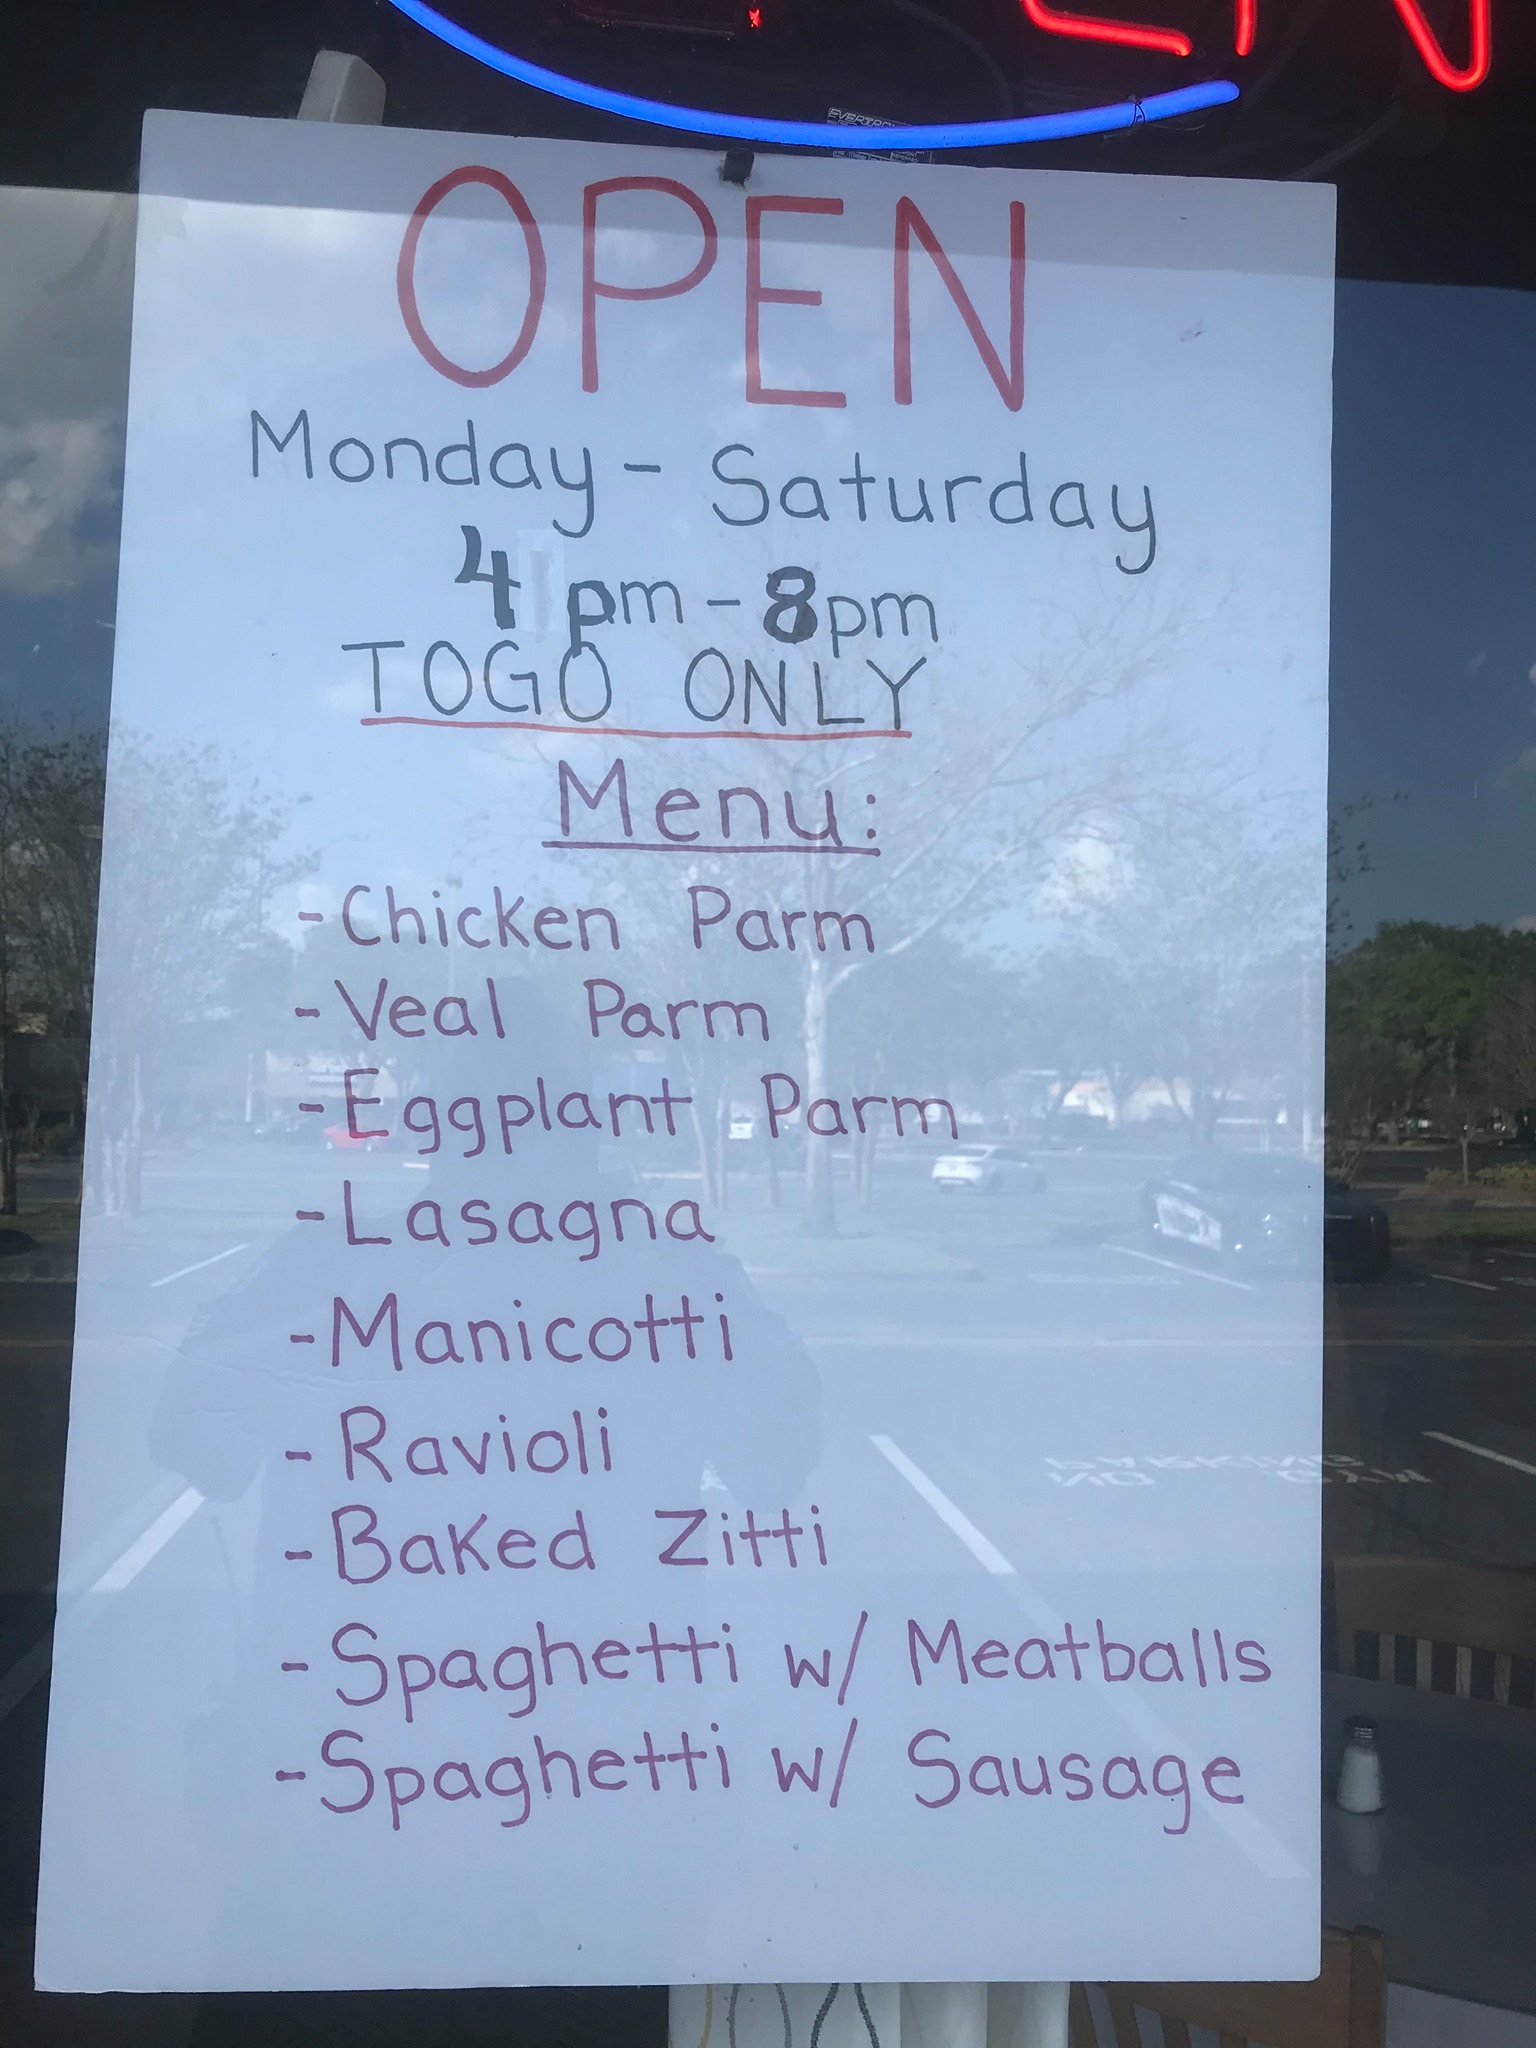 EN
OPEN
Monday - Saturday
4 pm - 8pm
TOGO ONLY
Menu:
- Chicken Parm
- Veal Parm
- Eggplant Parm
- Lasagna
- Manicotti
- Ravioli
- Baked Zitti
- Spaghetti w/ Meatballs
- Spaghetti w/ Sausage